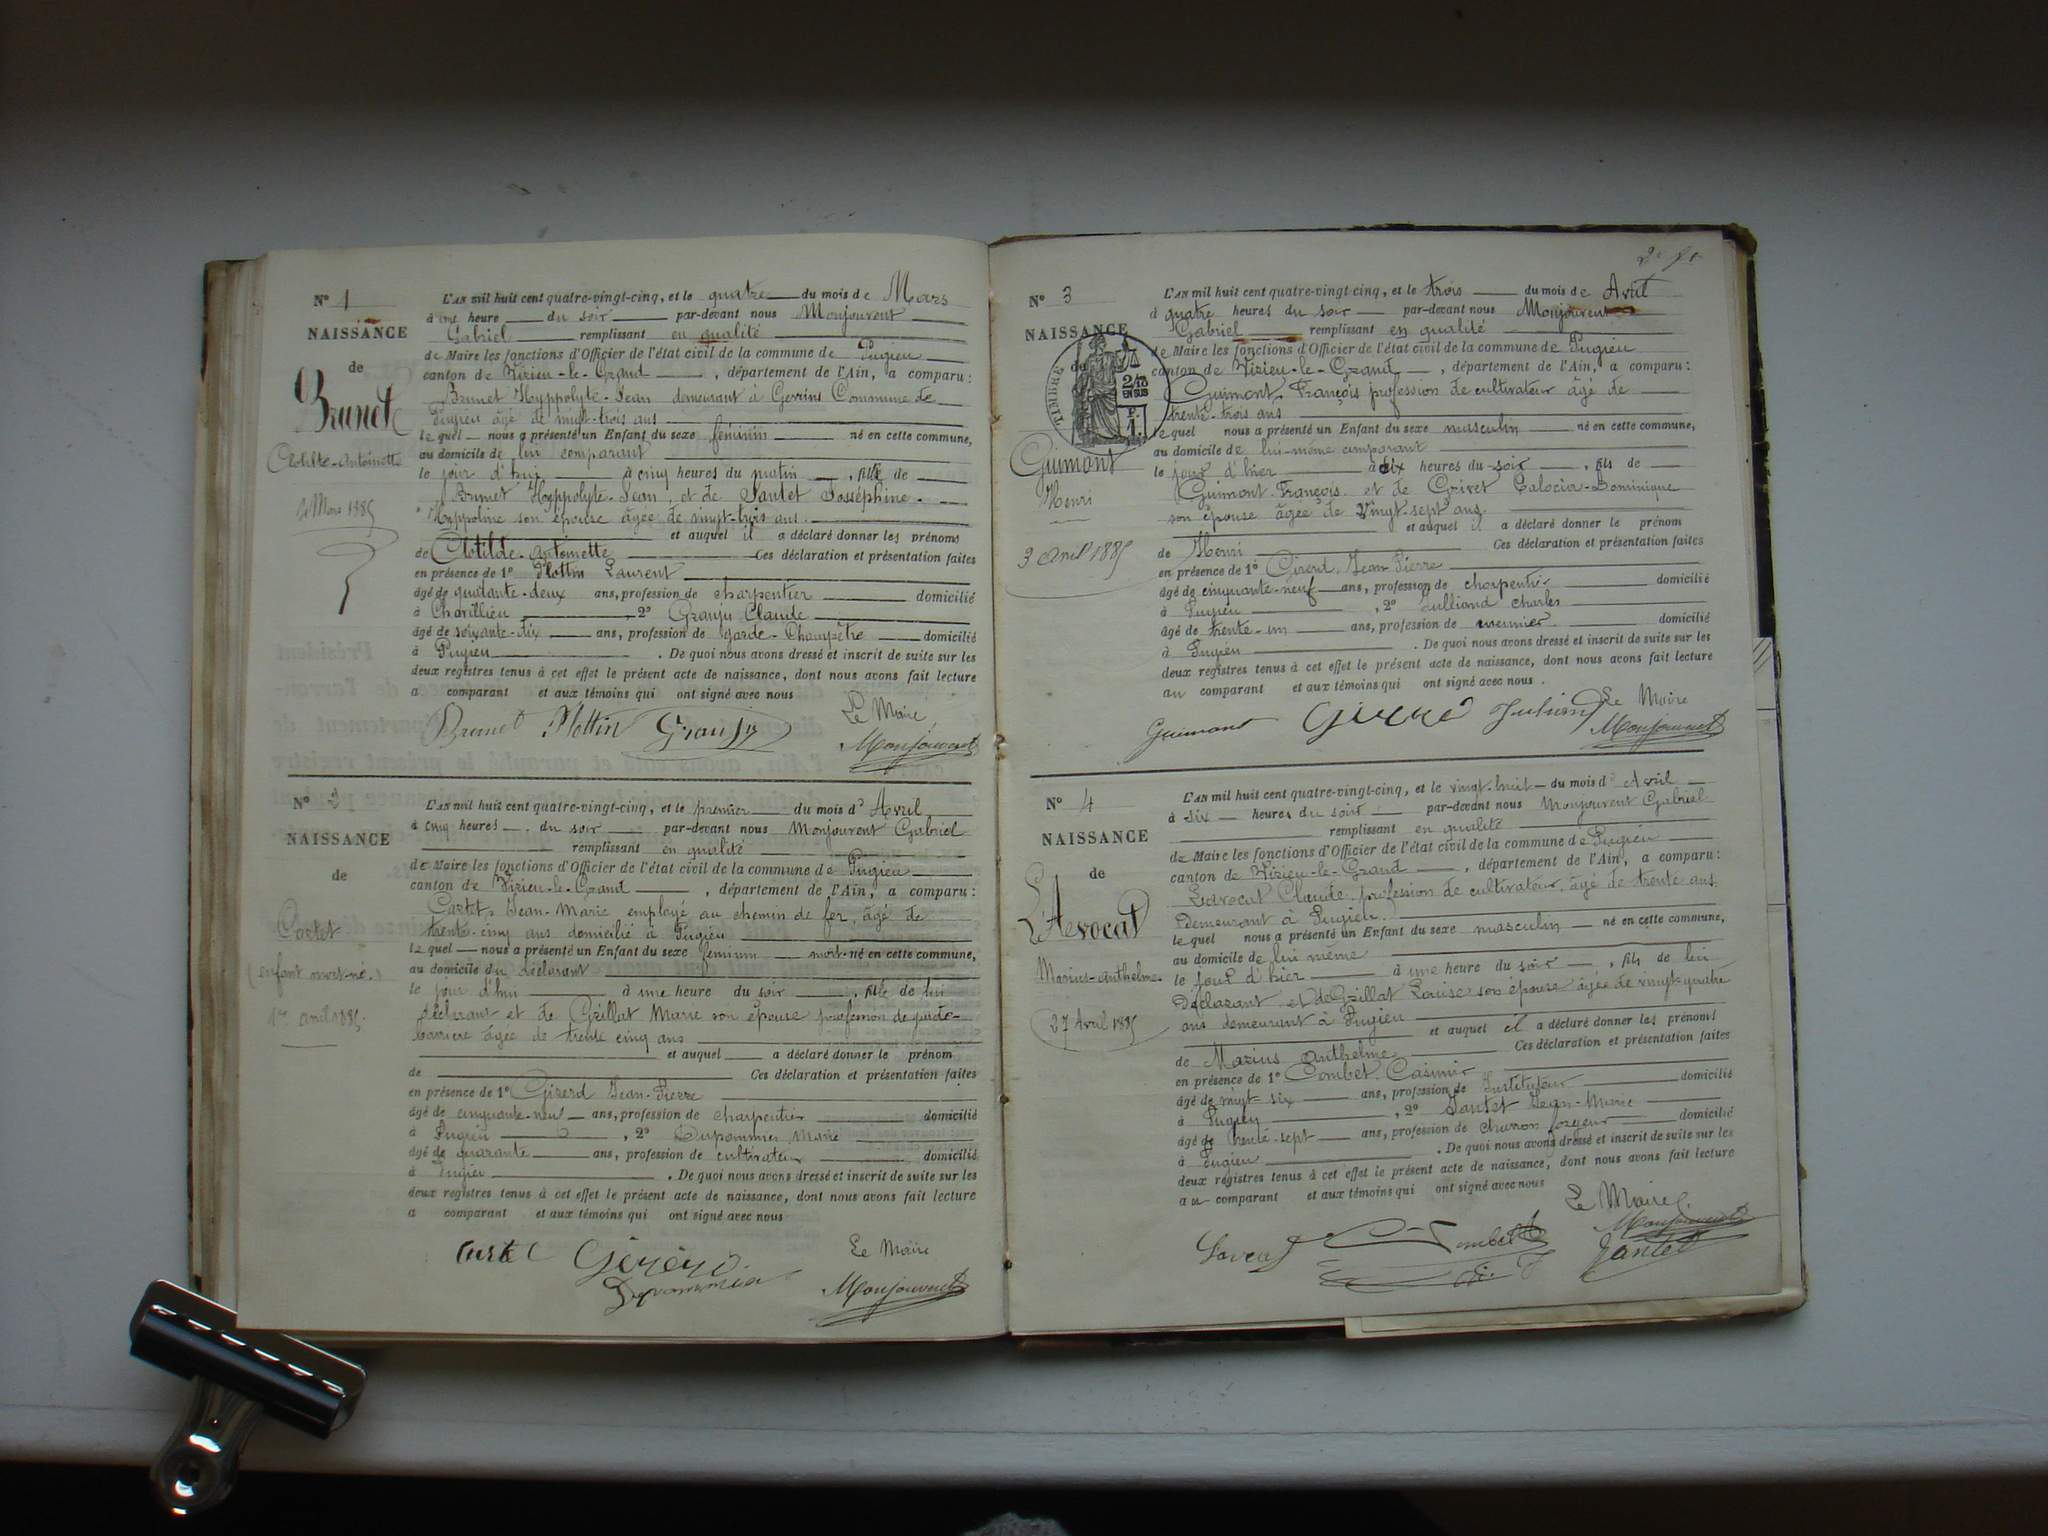 N° 1
NAISSANCE
de
Brunet
Clotilde-Antoinette
4 Mars 1885
L'AN mil huit cent quatre-vingt-cinq, et le quatre du mois de Mars
à cinq heure du soir par-devant nous Monjouvent
Gabriel remplissant en qualité
de Maire les fonctions d'Officier de l'état civil de la commune de Pugieu
canton de Virieu-le-Grand, département de l'Ain, a comparu:
Brunet Hyppolyte-Jean demeurant à Gevrins Commune de
Pugieu âgé de vingt-trois ans
le quel nous a présenté un Enfant du sexe féminin né en cette commune,
au domicile de lui comparant
le jour d'hui à cinq heures du matin, fille de
Brunet Hyppolyte-Jean et de Jantet Josséphine-
Hyppoline son épouse âgée de vingt-trois ans.
et auquel il a déclaré donner les prénoms
de Clotilde-Antoinette Ces déclaration et présentation faites
en présence de 1° Plottin Laurent
âgé de quarante-deux ans, profession de charpentier domicilié
à Chavillieu, 2° Granju Claude
âgé de soixante-dix ans, profession de garde-Champêtre domicilié
à Pugieu. De quoi nous avons dressé et inscrit de suite sur les
deux registres tenus à cet effet le présent acte de naissance, dont nous avons fait lecture
a comparant et aux témoins qui ont signé avec nous
Le Maire
Brunet Plottin Granju Monjouvent
N° 2
NAISSANCE
de
Cartet
(enfant mort-né.)
1er avril 1885.
L'AN mil huit cent quatre-vingt-cinq, et le premier du mois d'Avril
à cinq heures du soir par-devant nous Monjouvent Gabriel
remplissant en qualité
de Maire les fonctions d'Officier de l'état civil de la commune de Pugieu
canton de Virieu-le-Grand, département de l'Ain, a comparu:
Cartet, Jean-Marie employé au chemin de fer, âgé de
trente-cinq ans domicilié à Pugieu
le quel nous a présenté un Enfant du sexe féminin mort-né en cette commune,
au domicile du déclarant
le jour d'hui à une heure du soir, fille de lui
déclarant et de Grillat Marie son épouse profession de garde-
barrière âgée de trente cinq ans
et auquel a déclaré donner le prénom
de Ces déclaration et présentation faites
en présence de 1° Girerd Jean-Pierre
âgé de cinquante-neuf ans, profession de charpentier domicilié
à Pugieu, 2° Dupommier Marie
âgé de quarante ans, profession de cultivateur domicilié
à Pugieu. De quoi nous avons dressé et inscrit de suite sur les
deux registres tenus à cet effet le présent acte de naissance, dont nous avons fait lecture
a comparant et aux témoins qui ont signé avec nous
Le Maire
Cartet Girerd
Monjouvent
N° 3
NAISSANCE
de
TIMBRE
Guimont
Henri
3 avril 1885
L'AN mil huit cent quatre-vingt-cinq, et le trois du mois de Avril
à quatre heures du soir par-devant nous Monjouvent
Gabriel remplissant en qualité
de Maire les fonctions d'Officier de l'état civil de la commune de Pugieu
canton de Virieu-le-Grand, département de l'Ain, a comparu:
Guimont François profession de cultivateur âgé de
trente-trois ans
le quel nous a présenté un Enfant du sexe masculin né en cette commune,
au domicile de lui-même comparant
le jour d'hier à dix heures du soir, fils de
Guimont François et de Grivet Dominique
son épouse âgée de Vingt-sept ans
et auquel il a déclaré donner les prénom
de Henri Ces déclaration et présentation faites
en présence de 1° Girerd Jean Pierre
âgé de cinquante-neuf ans, profession de charpentier domicilié
à Pugieu, 2° Julliand Charles
âgé de trente-un ans, profession de meunier domicilié
à Pugieu. De quoi nous avons dressé et inscrit de suite sur les
deux registres tenus à cet effet le présent acte de naissance, dont nous avons fait lecture
au comparant et aux témoins qui ont signé avec nous.
Le Maire
Guimont Girerd Juliand Monjouvent
N° 4
NAISSANCE
de
L'Avocat
Marius-Anthelme
27 Avril 1885
L'AN mil huit cent quatre-vingt-cinq, et le vingt-huit du mois d'Avril
à six heures du soir par-devant nous Monjouvent Gabriel
remplissant en qualité
de Maire les fonctions d'Officier de l'état civil de la commune de Pugieu
canton de Virieu-le-Grand, département de l'Ain, a comparu:
Lavocat Claude profession de cultivateur âgé de trente ans
Demeurant à Pugieu.
le quel nous a présenté un Enfant du sexe masculin né en cette commune,
au domicile de lui même
le jour d'hier à une heure du soir, fils de lui
Déclarant et de Grillat Louise son épouse âgée de vingt-quatre
ans demeurant à Pugieu
et auquel il a déclaré donner les prénoms
de Marius Anthelme Ces déclaration et présentation faites
en présence de 1° Combet Casimir
âgé de vingt-six ans, profession de Instituteur domicilié
à Pugieu, 2° Jantet Jean-Marie
âgé de trente-sept ans, profession de charron forgeur domicilié
à Pugieu. De quoi nous avons dressé et inscrit de suite sur les
deux registres tenus à cet effet le présent acte de naissance, dont nous avons fait lecture
au comparant et aux témoins qui ont signé avec nous
Le Maire
Monjouvent
Lavocat Combet Jantet